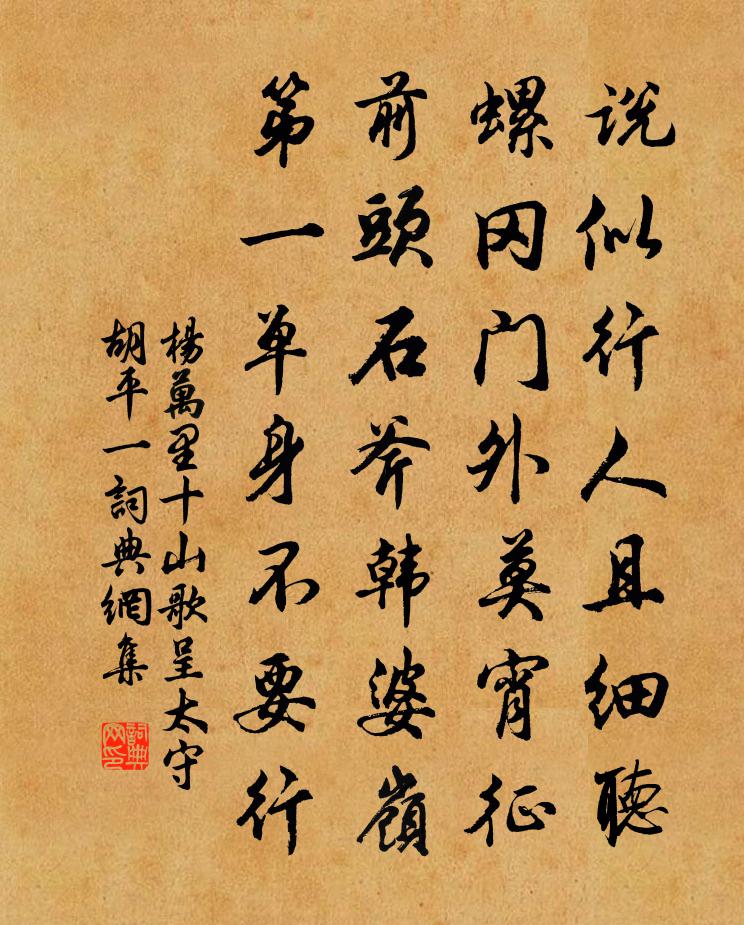 说似行人且细聴
螺冈门外莫宵征
前頭石斧韩婆嶺
第一单身不要行
楊萬里十山歌呈太守
胡平一詞典網集
詞典网印